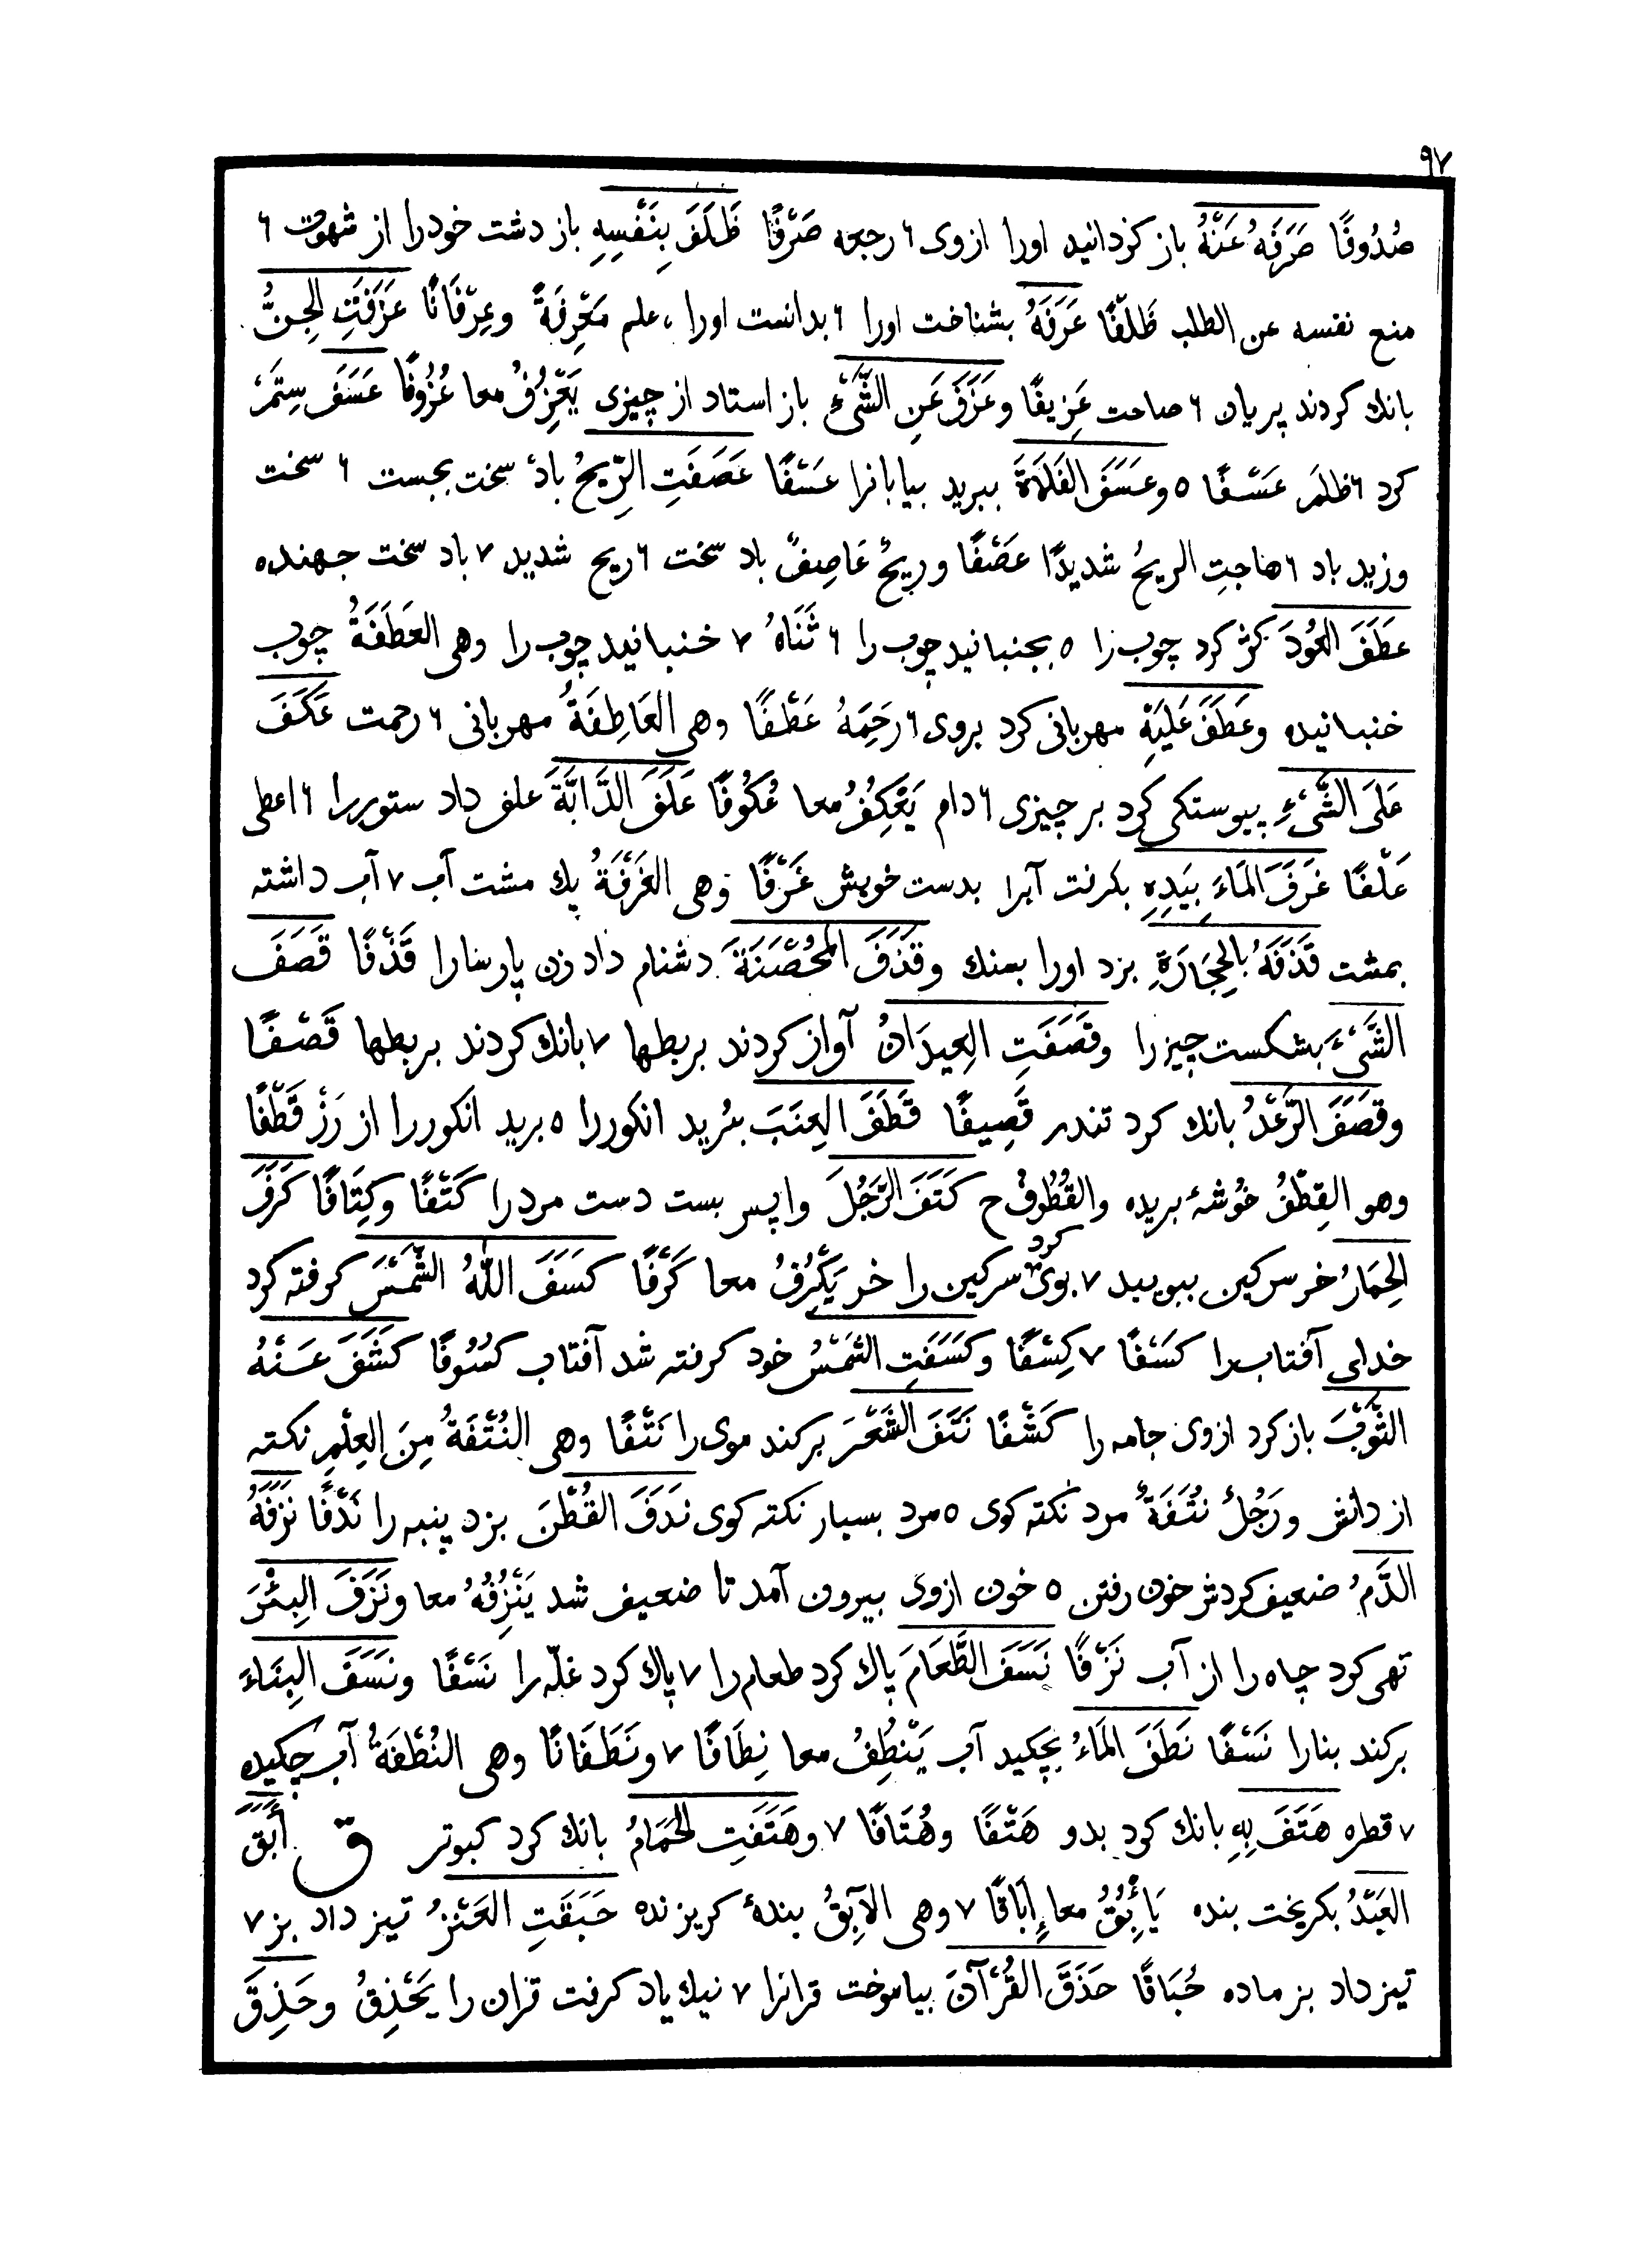 ٩٧
صُدُوفًا صَرَفَهُ عَنْهُ باز كردانيد اورا ازوى ٦ رجعه صَرْفًا ظَلَفَ بِنَفْسِهِ باز دشت خودرا از شهوت ٦
منع نفسه عن الطلب ظَلْفًا عَرَفَهُ بشناخت اورا ٦ بدانست اورا ، علم مَعْرِفَةً وعِرْفَانًا عَزَفَتِ الجِنُّ
بانك كردند پريان ٦ صاحت عَزِيفًا وعَزَفَ عَنِ الشَّىْءِ باز استاد از چيزى يَعْزِفُ معا عُزُوفًا عَسَفَ سِتَمْ
كرد ٦ ظلمَ عَسْفًا ٥ وعَسَفَ الفَلَاةَ ببريد بيابانرا عَسْفًا عَصَفَتِ الرِّيحُ بادْ سخت بجست ٦ سخت
وزيد باد ٦ هاجتِ الريحُ شديدًا عَصْفًا وريحٌ عَاصِفٌ باد سخت ٦ ريح شديد ٧ باد سخت جهنده
عَطَفَ العُودَ كژ كرد چوب را ٥ بجنبانيد چوب را ٦ ثَنَاهُ ٧ خنبانيد چوب را وهى العَطَفَةُ چوب
خنبانيده وعَطَفَ عَلَيْهِ مهربانى كرد بروى ٦ رَحِمَهُ عَطْفًا وهى العَاطِفَةُ مهربانى ٦ رحمت عَكَفَ
عَلَى الشَّىْءِ پيوستكى كرد بر چيزى ٦ دام يَعْكِفُ معا عُكُوفًا عَلَفَ الدَّابَّةَ علف داد ستوررا ٦ اعطى
عَلْفًا غَرَفَ المَاءَ بِيَدِهِ بكرفت آبرا بدست خويش غَرْفًا وهى الغَرْفَةُ يك مشت آب ٧ آب داشته
بمشت قَذَفَهُ بِالحِجَارَةِ بزد اورا بسنك وقَذَفَ المُحْصَنَةَ دشنام داد زن پارسارا قَذْفًا قَصَفَ
الشَّىْءَ بشكست چيزرا وقَصَفَتِ العِيدَانُ آواز كردند بربطها ٧ بانك كردند بربطها قَصْفًا
وقَصَفَ الرَّعْدُ بانك كرد تندر قَصِيفًا قَطَفَ العِنَبَ ببُريد انكوررا ٥ بريد انكوررا از رَزْ قَطْفًا
وهو القِطْفُ خُوشهٔ بريده والقُطُوفُ ح كَتَفَ الرَّجُلَ واپس بست دست مردرا كَتْفًا وكِتَافًا كَرَفَ
الحِمَارُ خر سركين ببوييد ٧ بوى كرد سركين را خر يَكْرُفُ معا كَرْفًا كسَفَ اللهُ الشَّمْسَ كرفته كرد
خداى آفتاب را كسْفًا ٧ كِسْفًا وكسَفَتِ الشَّمْسُ خود كرفته شد آفتاب كسُوفًا كشَفَ عَنْهُ
الثَّوْبَ باز كرد ازوى جامه را كَشْفًا نَتَفَ الشَّعْرَ بركند موى را نَتْفًا وهى النُّتْفَةُ مِنَ العِلْمِ نكته
از دانش ورَجُلٌ نُتَفَةٌ مرد نكته كوى ٥ مرد بسيار نكته كوى نَدَفَ القُطْنَ بزد پنبه را نَدْفًا نَزَفَهُ
الدَّمُ ضعيف كردش خون رفتن ٥ خون ازوى بيرون آمد تا ضعيف شد يَنْزِفُهُ معا ونَزَفَ البِئْرَ
تهى كرد چاه را از آب نَزْفًا نَسَفَ الطَّعَامَ پاك كرد طعام را ٧ پاك كرد غلّه را نَسْفًا ونَسَفَ البِنَاءَ
بركند بنارا نَسْفًا نَطَفَ المَاءُ بچكيد آب يَنْطِفُ معا نِطَافًا ٧ ونَطَفَانًا وهى النُطْفَةُ آب چكيده
٧ قطره هَتَفَ بِهِ بانك كرد بدو هَتْفًا وهُتَافًا ٧ وهَتَفَتِ الحَمَامُ بانك كرد كبوتر ق أَبَقَ
العَبْدُ بكريخت بنده يَأْبِقُ معا إِبَاقًا ٧ وهى الآبِقُ بندهٔ كريزنده حَبَقَتِ العَنْزُ تيز داد بز ٧
تيز داد بز ماده حُبَاقًا حَذَقَ القُرْآنَ بياموخت قرانرا ٧ نيك ياد كرفت قران را يَحْذِقُ وحَذِقَ